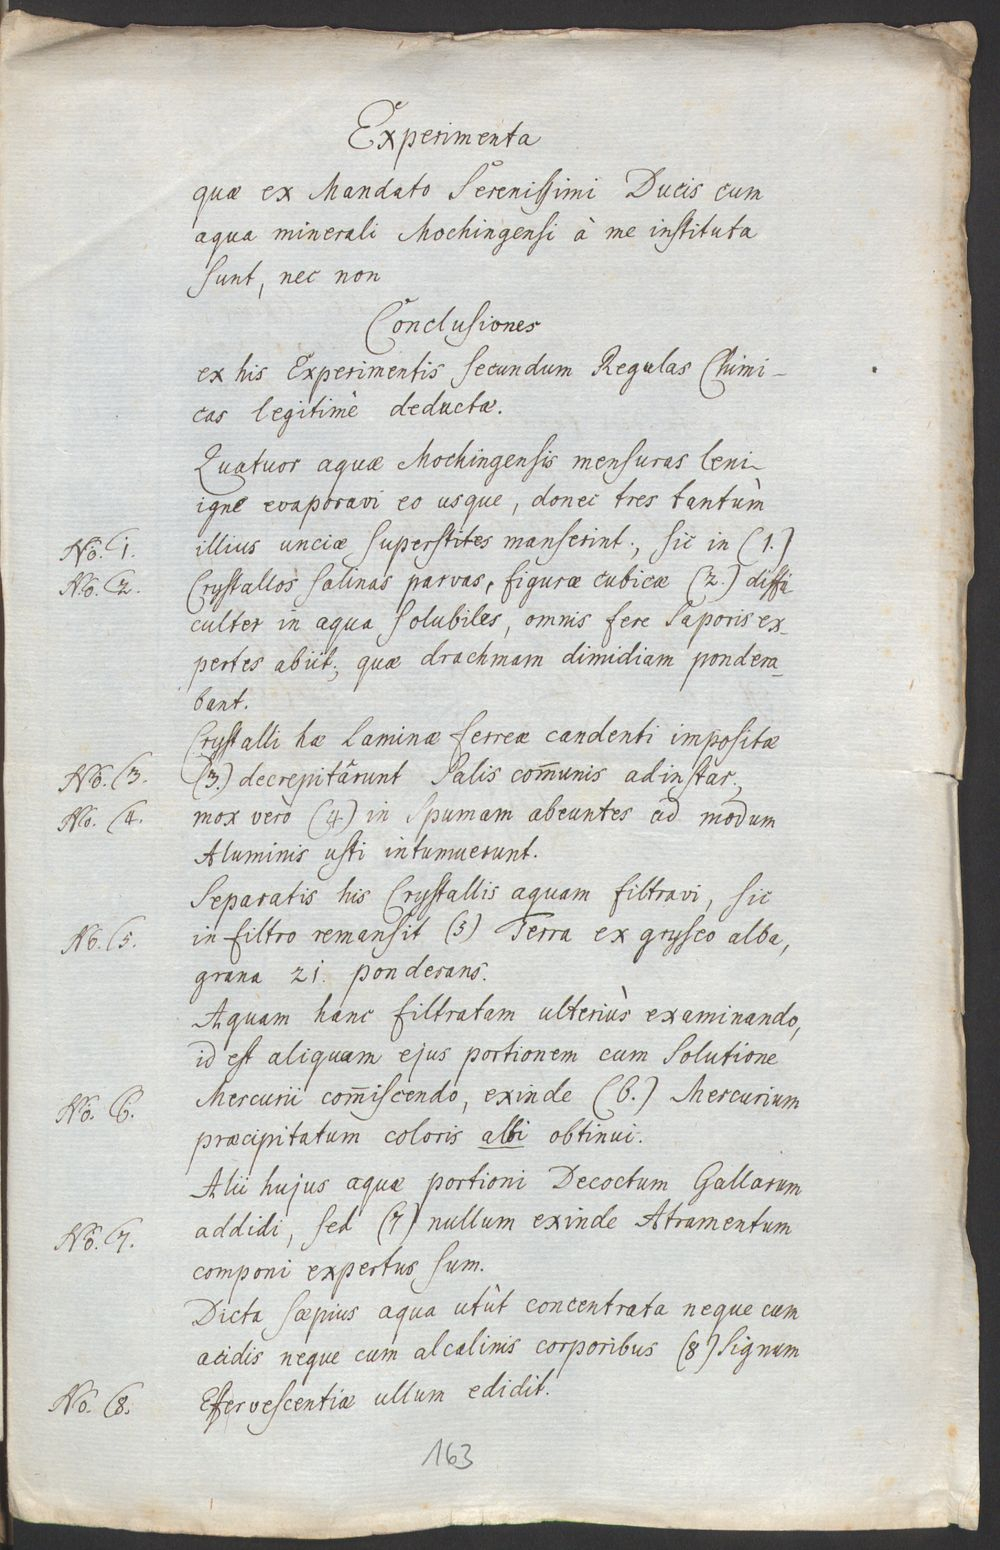 Experimenta
quæ ex Mandato Serenissimi Ducis cum
aqua minerali Mochingensi à me instituta
sunt, nec non
Conclusiones
ex his Experimentis secundum Regulas Chimi-
cas legitimè deductæ.
Quatuor aquæ Mochingensis mensuras leni
igne evaporavi eo usque, donec tres tantùm
No. 1. illius unciæ superstites manserint; sic in (1.)
No. 2. Crystallos salinas parvas, figuræ cubicæ (2.) diffi-
culter in aqua solubiles, omnis fere saporis ex-
pertes abiit; quæ drachmam dimidiam pondera-
bant.
Crystalli hæ Laminæ ferreæ candenti impositæ
No. 3. (3.) decrepitârunt Salis com̄unis ad instar;
No. 4. mox verò (4.) in Spumam abeuntes ad modum
Aluminis usti intumuerunt.
Separatis his Crystallis aquam filtravi, sic
No. 5. in filtro remansit (5) Terra ex gryseo alba,
grana 21. ponderans.
Aquam hanc filtratam ulteriùs examinando,
id est aliquam ejus portionem cum Solutione
No. 6. Mercurii com̄iscendo, exinde (6.) Mercurium
præcipitatum coloris albi obtinui.
Alii hujus aquæ portioni Decoctum Gallarum
No. 7. addidi, sed (7) nullum exinde Atramentum
componi expertus sum.
Dicta sæpius aqua utùt concentrata neque cum
acidis neque cum alcalinis corporibus (8) Signum
No. 8. Effervescentiæ ullum edidit.
163